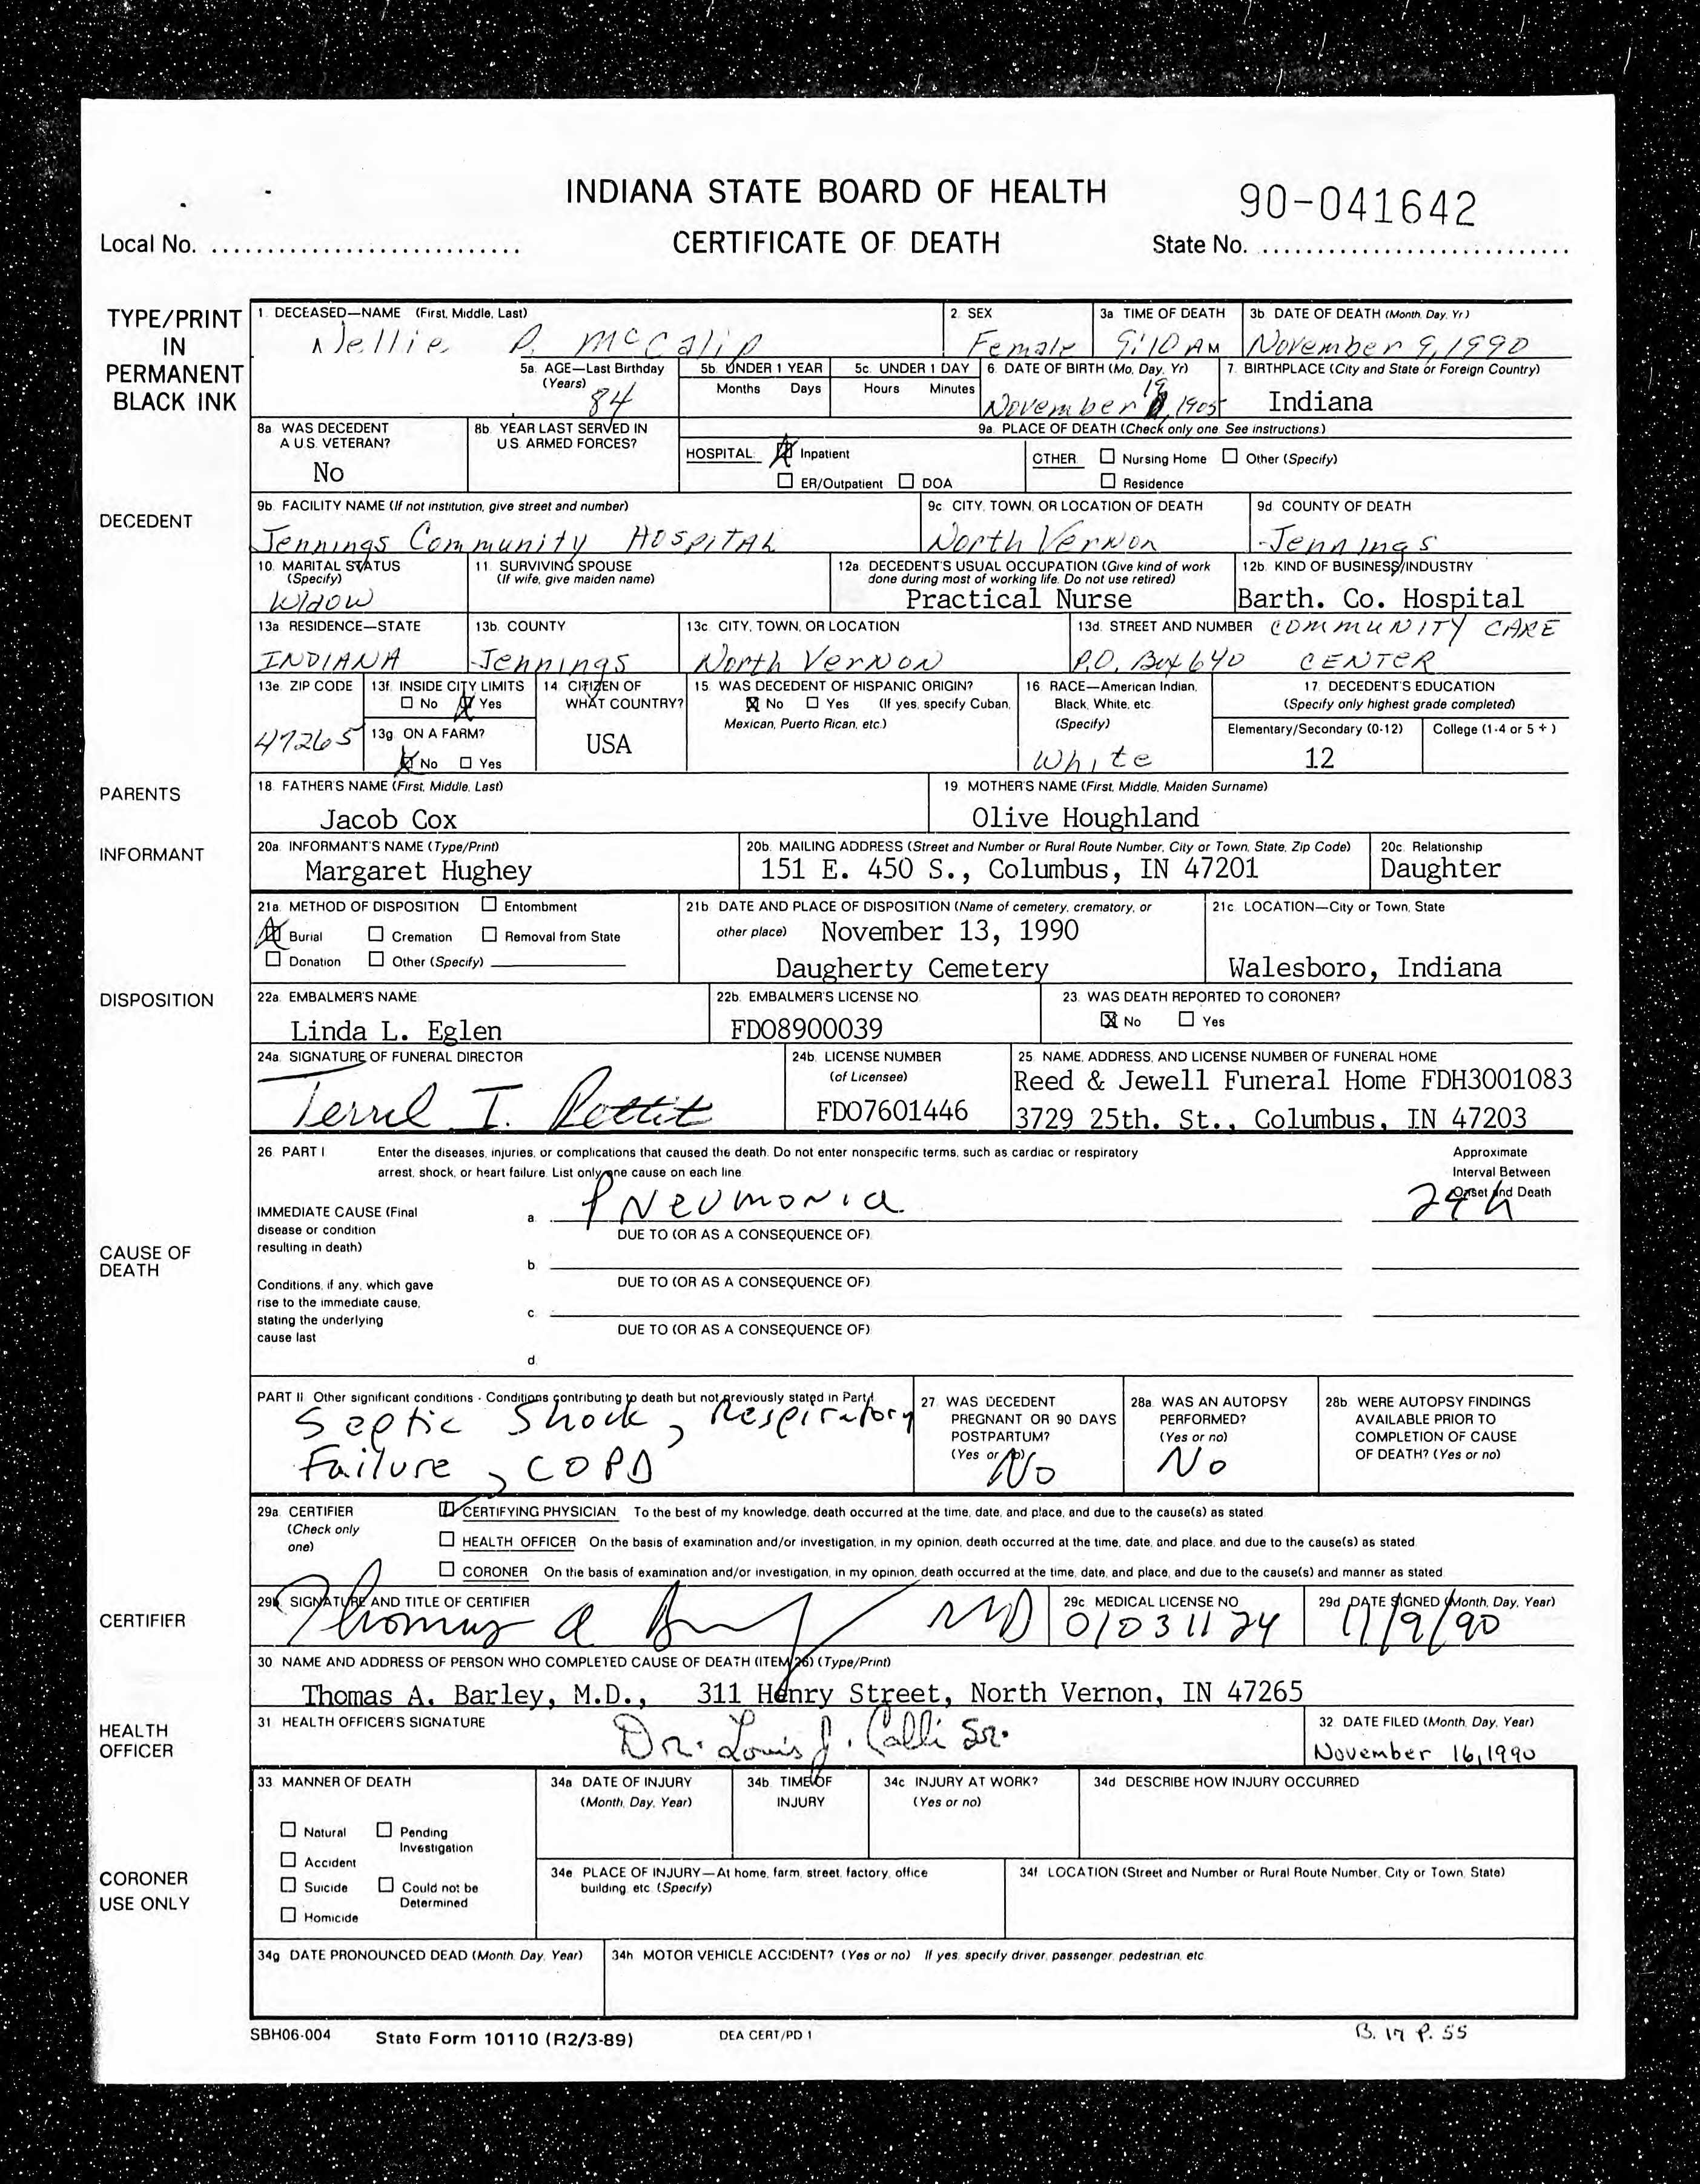 INDIANA STATE BOARD OF HEALTH
90-041642
Local No.
CERTIFICATE OF DEATH
State No.
TYPE/PRINT
IN
PERMANENT
BLACK INK
1. DECEASED—NAME (First, Middle, Last)
Nellie P. McCalip
2. SEX
Female
3a. TIME OF DEATH
9:10 AM
3b. DATE OF DEATH (Month, Day, Yr.)
November 9, 1990
5a. AGE—Last Birthday
(Years)
84
5b. UNDER 1 YEAR
Months Days
5c. UNDER 1 DAY
Hours Minutes
6. DATE OF BIRTH (Mo, Day, Yr)
19
November , 1905
7. BIRTHPLACE (City and State or Foreign Country)
Indiana
DECEDENT
8a. WAS DECEDENT
A U.S. VETERAN?
No
8b. YEAR LAST SERVED IN
U.S. ARMED FORCES?
9a. PLACE OF DEATH (Check only one. See instructions.)
HOSPITAL: Inpatient
ER/Outpatient DOA
OTHER Nursing Home Other (Specify)
Residence
9b. FACILITY NAME (If not institution, give street and number)
Jennings Community HOSPITAL
9c. CITY, TOWN, OR LOCATION OF DEATH
North Vernon
9d. COUNTY OF DEATH
Jennings
10. MARITAL STATUS
(Specify)
Widow
11. SURVIVING SPOUSE
(If wife, give maiden name)
12a. DECEDENT'S USUAL OCCUPATION (Give kind of work
done during most of working life. Do not use retired)
Practical Nurse
12b. KIND OF BUSINESS/INDUSTRY
Barth. Co. Hospital
13a. RESIDENCE—STATE
INDIANA
13b. COUNTY
Jennings
13c. CITY, TOWN, OR LOCATION
North Vernon
13d. STREET AND NUMBER COMMUNITY CARE
P.O. Box 640 CENTER
13e. ZIP CODE
47265
13f. INSIDE CITY LIMITS
No Yes
13g. ON A FARM?
No Yes
14. CITIZEN OF
WHAT COUNTRY?
USA
15. WAS DECEDENT OF HISPANIC ORIGIN?
No Yes (If yes, specify Cuban,
Mexican, Puerto Rican, etc.)
16. RACE—American Indian,
Black, White, etc.
(Specify)
White
17. DECEDENT'S EDUCATION
(Specify only highest grade completed)
Elementary/Secondary (0-12)
12
College (1-4 or 5 + )
PARENTS
18. FATHER'S NAME (First, Middle, Last)
Jacob Cox
19. MOTHER'S NAME (First, Middle, Maiden Surname)
Olive Houghland
INFORMANT
20a. INFORMANT'S NAME (Type/Print)
Margaret Hughey
20b. MAILING ADDRESS (Street and Number or Rural Route Number, City or Town, State, Zip Code)
151 E. 450 S., Columbus, IN 47201
20c. Relationship
Daughter
DISPOSITION
21a. METHOD OF DISPOSITION Entombment
Burial Cremation Removal from State
Donation Other (Specify)
21b. DATE AND PLACE OF DISPOSITION (Name of cemetery, crematory, or
other place) November 13, 1990
Daugherty Cemetery
21c. LOCATION—City or Town, State
Walesboro, Indiana
22a. EMBALMER'S NAME
Linda L. Eglen
22b. EMBALMER'S LICENSE NO.
FDO8900039
23. WAS DEATH REPORTED TO CORONER?
No Yes
24a. SIGNATURE OF FUNERAL DIRECTOR
Terrel I. Pettit
24b. LICENSE NUMBER
(of Licensee)
FDO7601446
25. NAME, ADDRESS, AND LICENSE NUMBER OF FUNERAL HOME
Reed & Jewell Funeral Home FDH3001083
3729 25th. St., Columbus, IN 47203
CAUSE OF
DEATH
26. PART I Enter the diseases, injuries, or complications that caused the death. Do not enter nonspecific terms, such as cardiac or respiratory
arrest, shock, or heart failure. List only one cause on each line.
Approximate
Interval Between
Onset and Death
IMMEDIATE CAUSE (Final
disease or condition
resulting in death)
a. Pneumonia
24h
DUE TO (OR AS A CONSEQUENCE OF):
b.
DUE TO (OR AS A CONSEQUENCE OF):
Conditions, if any, which gave
rise to the immediate cause,
stating the underlying
cause last
c.
DUE TO (OR AS A CONSEQUENCE OF):
d.
PART II. Other significant conditions - Conditions contributing to death but not previously stated in Part I.
Septic Shock, Respiratory
Failure, COPD
27. WAS DECEDENT
PREGNANT OR 90 DAYS
POSTPARTUM?
(Yes or no)
No
28a. WAS AN AUTOPSY
PERFORMED?
(Yes or no)
No
28b. WERE AUTOPSY FINDINGS
AVAILABLE PRIOR TO
COMPLETION OF CAUSE
OF DEATH? (Yes or no)
CERTIFIER
29a. CERTIFIER
(Check only
one)
CERTIFYING PHYSICIAN To the best of my knowledge, death occurred at the time, date, and place, and due to the cause(s) as stated.
HEALTH OFFICER On the basis of examination and/or investigation, in my opinion, death occurred at the time, date, and place, and due to the cause(s) as stated.
CORONER On the basis of examination and/or investigation, in my opinion, death occurred at the time, date, and place, and due to the cause(s) and manner as stated.
29b. SIGNATURE AND TITLE OF CERTIFIER
Thomas A MD
29c. MEDICAL LICENSE NO.
01031124
29d. DATE SIGNED (Month, Day, Year)
11/9/90
30. NAME AND ADDRESS OF PERSON WHO COMPLETED CAUSE OF DEATH (ITEM 26) (Type/Print)
Thomas A. Barley, M.D., 311 Henry Street, North Vernon, IN 47265
HEALTH
OFFICER
31. HEALTH OFFICER'S SIGNATURE
Dr. Louis J. Calli Sr.
32. DATE FILED (Month, Day, Year)
November 16, 1990
CORONER
USE ONLY
33. MANNER OF DEATH
Natural Pending
Investigation
Accident
Suicide Could not be
Determined
Homicide
34a. DATE OF INJURY
(Month, Day, Year)
34b. TIME OF
INJURY
34c. INJURY AT WORK?
(Yes or no)
34d. DESCRIBE HOW INJURY OCCURRED
34e. PLACE OF INJURY—At home, farm, street, factory, office
building, etc. (Specify)
34f. LOCATION (Street and Number or Rural Route Number, City or Town, State)
34g. DATE PRONOUNCED DEAD (Month, Day, Year)
34h. MOTOR VEHICLE ACCIDENT? (Yes or no) If yes, specify driver, passenger, pedestrian, etc.
SBH06-004
State Form 10110 (R2/3-89)
DEA CERT/PD 1
B. 17 P. 55